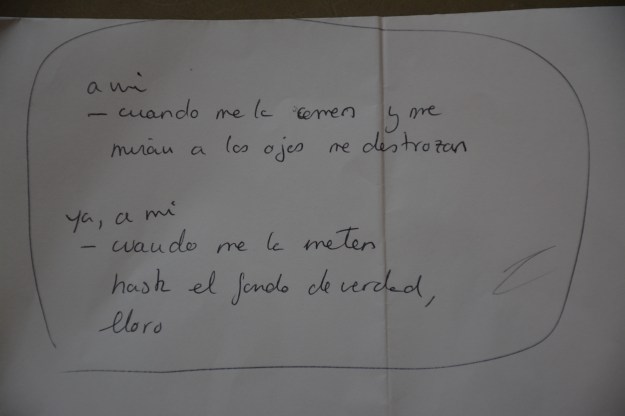 a mi
- cuando me la comen y me
miran a los ojos me destrozan
ya, a mi
- cuando me la meten
hasta el fondo de verdad,
lloro